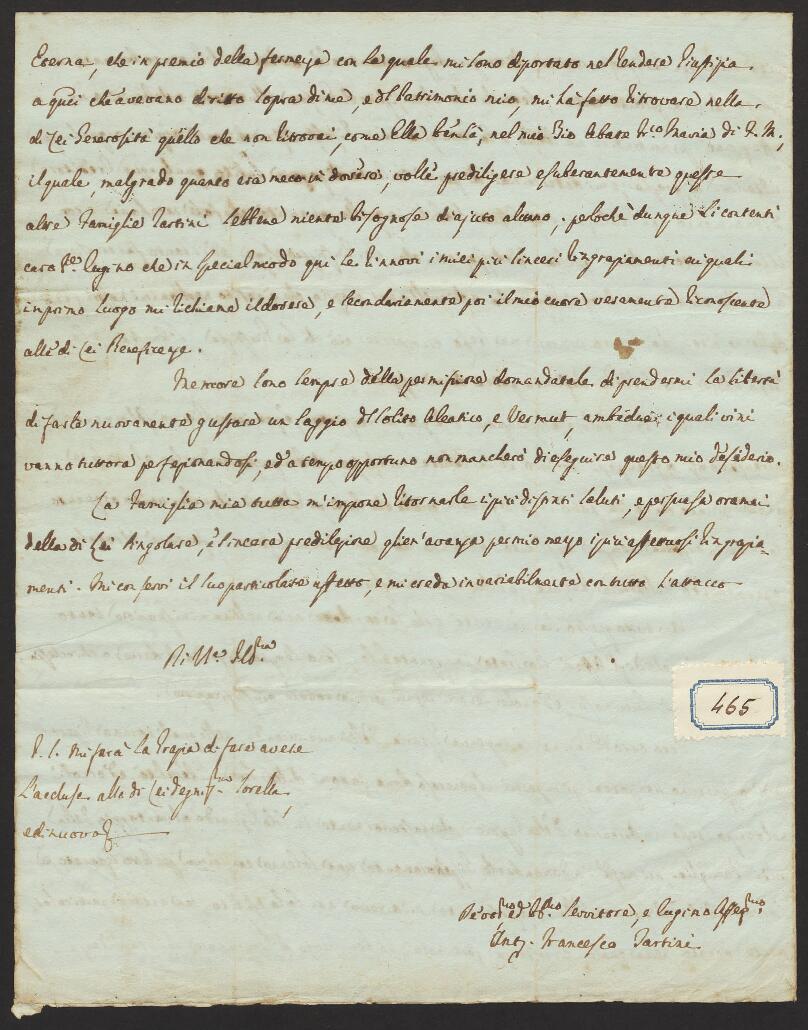 Eterna, che in premio della fermezza con la quale mi sono diportato nel rendere Giustizia
a quei che avevano diritto sopra di me, e del Patrimonio mio, mi hà fatto ritrovare nella
di Lei Generosità quello che non ritrovai, come Ella ben sà, nel mio Zio Abate Maria di F. M.,
il quale, malgrado quanto era meco in dovere, volle prediligere esuberantemente queste
altre Famiglie Tartini sebbene niente bisognose di ajuto alcuno; per lochè dunque si contenti
caro Sre. Cugino che in special modo qui Le rinnovi i miei più sinceri ringraziamenti ai quali
in primo luogo mi richiama il dovere, e secondariamente poi il mio cuore veramente riconoscente
alle di Lei Beneficenze.
Memore sono sempre della permissione domandatale di prendermi la libertà
di farle nuovamente gustare un saggio del solito Aleatico, e Vermut, ambidue i quali vini
vanno tuttora perfezionandosi, ed a tempo opportuno non mancherò di eseguire questo mio desiderio.
La Famiglia mia tutta m'impone ritornarle i più distinti saluti, e persuasa oramai
della di Lei singolare, e sincera predilezione glien'avanza per mio mezzo i più affettuosi ringrazia-
menti. Mi conservi il suo particolare affetto, e mi creda invariabilmente con tutto l'attacco
Di V. S. Illma.
465
P. S. Mi farà la Grazia di fare avere
l'accluse alla di Lei degnma. Sorella,
e di nuovo
Devmo. ed Obbmo. Servitore, e Cugino Affezmo.
Anto. Francesco Tartini